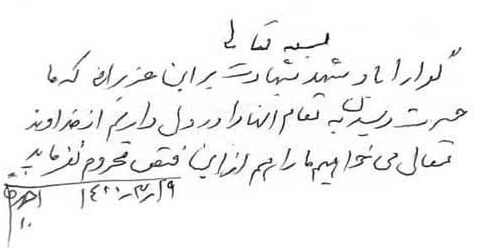 بسمه تعالی
گوارا باد شهد شهادت بر این عزیزان که ما
حسرت رسیدن به مقام آنها را در دل داریم از خداوند
تعالی می‌خواهیم ما را هم از این فیض محروم نفرماید
۱۴۲۰/۳/۱۹